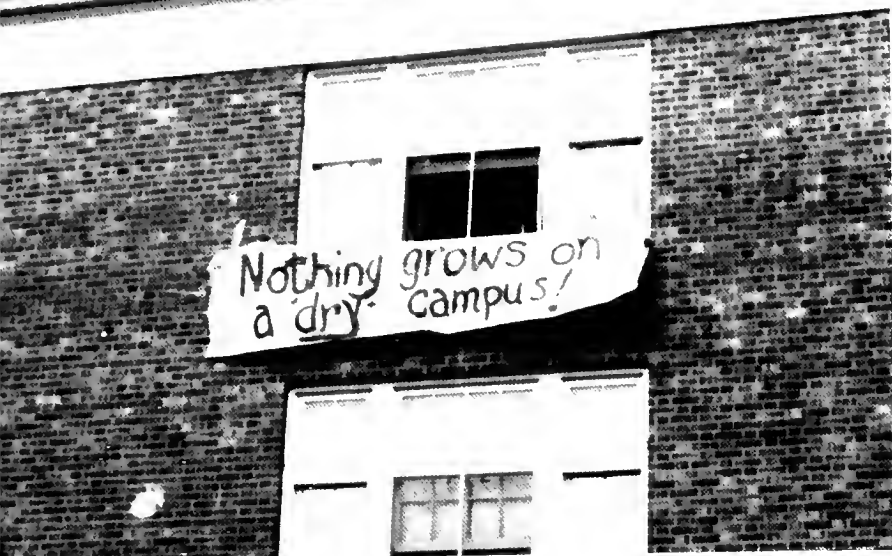 Nothing grows on
a dry campus!